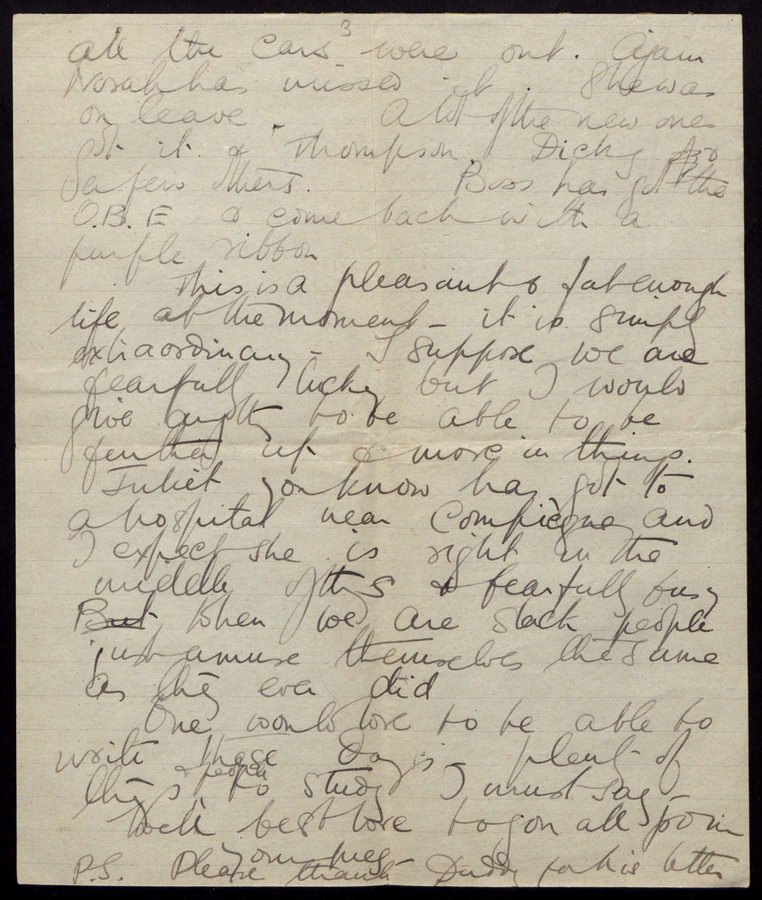 3
all the cars were out. Again
Norah has missed it. She was
on leave. A lot of the new ones
got it. & Thompson. Dicky
& a few others. Boss has got the
O.B.E & come back with a
purple ribbon
This is a pleasant & fat enough
life at the moment – it is simply
extraordinary – I suppose we are
fearfully lucky but I would
give anyth to be able to be
further up & more in things.
Juliet you know has got to
a hospital near Compiègne and
I expect she is right in the
middle of this & fearfully busy
But When we are slack people
just amuse themselves the same
as they ever did
One would love to be able to
write these days – plenty of
things & people to study I must say –
With best love to you all from
your Meg
P.S. Please thank Daddy for his letter